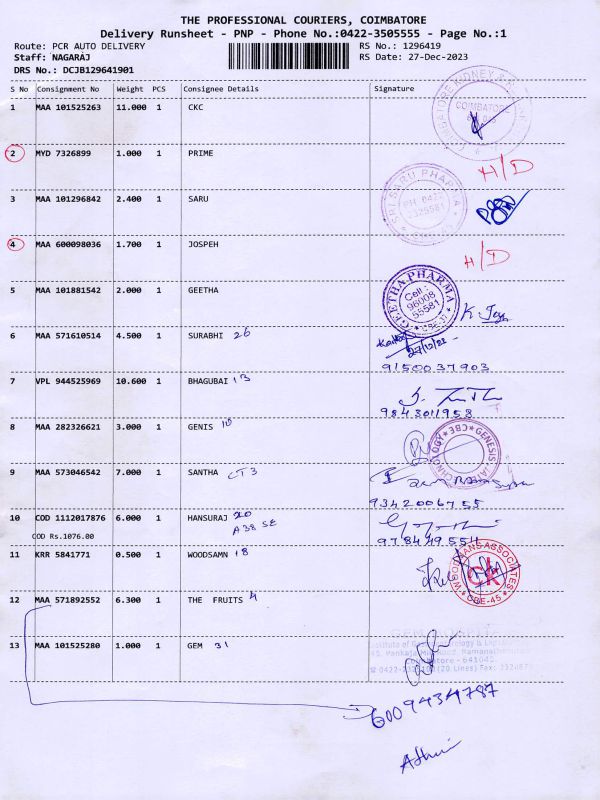 THE PROFESSIONAL COURIERS, COIMBATORE
Delivery Runsheet - PNP - Phone No.:0422-3505555 - Page No.:1
Route: PCR AUTO DELIVERY RS No.: 1296419
Staff: NAGARAJ RS Date: 27-Dec-2023
DRS No.: DCJB129641901
S No Consignment No Weight PCS Consignee Details Signature
1 MAA 101525263 11.000 1 CKC
COIMBATORE
2 MYD 7326899 1.000 1 PRIME
H/D
3 MAA 101296842 2.400 1 SARU
SRI SARU PHARMA
PH 0422
2329581
4 MAA 600098036 1.700 1 JOSPEH
H/D
5 MAA 101881542 2.000 1 GEETHA
GEETHA PHARMA
Cell:
96008
55581
CBE-37
K. Joy
6 MAA 571610514 4.500 1 SURABHI 26
27/12/23
9150037903
7 VPL 944525969 10.600 1 BHAGUBAI 13
9843011953
8 MAA 282326621 3.000 1 GENIS 10
9 MAA 573046542 7.000 1 SANTHA CT3
9342006755
10 COD 1112017876 6.000 1 HANSURAJ 20
A38 SE
COD Rs.1076.00
11 KRR 5841771 0.500 1 WOODSAMN 18
ASSOCIATES
ck
CBE-45
12 MAA 571892552 6.300 1 THE FRUITS 4
13 MAA 101525280 1.000 1 GEM 31
6009434787